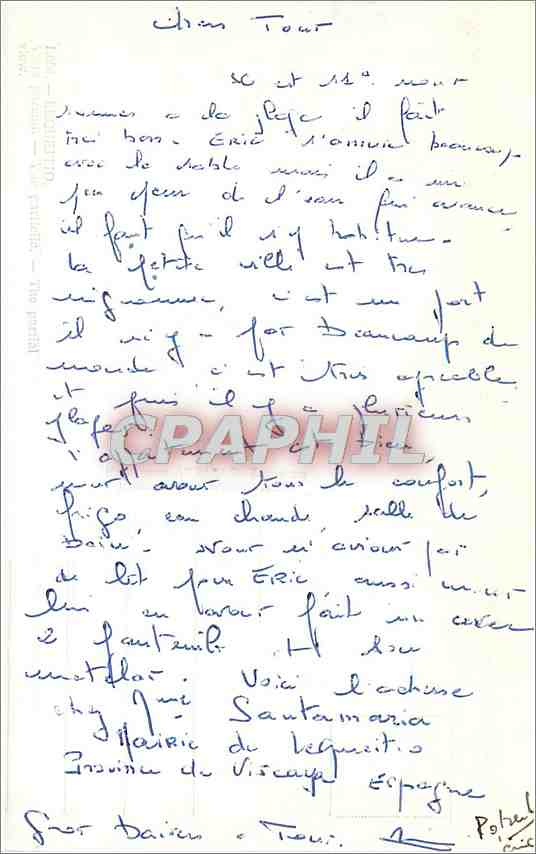 chers Tous
Il est 11h. nous
sommes a la plage il fait
très bon. ERIC s'amuse beaucoup
avec le sable mais il a un
peu peur de l'eau
il faut qu'il s'y habitue.
la petite ville est très
mignonne, c'est un port
il n'y a pas Beaucoup de
monde c'est très agréable
et puis il y a plusieurs
plages.
l'appartement est bien,
nous avons tous le confort,
frigo, eau chaude, salle de
Bain. Nous n'avions pas
de lit pour ERIC aussi nous
lui en avons fait un avec
2 fauteuils et son
matelas. Voici l'adresse
chez Mme Santamaria
Mairie de Lequeitio
Province de Viscaya Espagne
Gros Baisers a Tous.
CPAPHIL